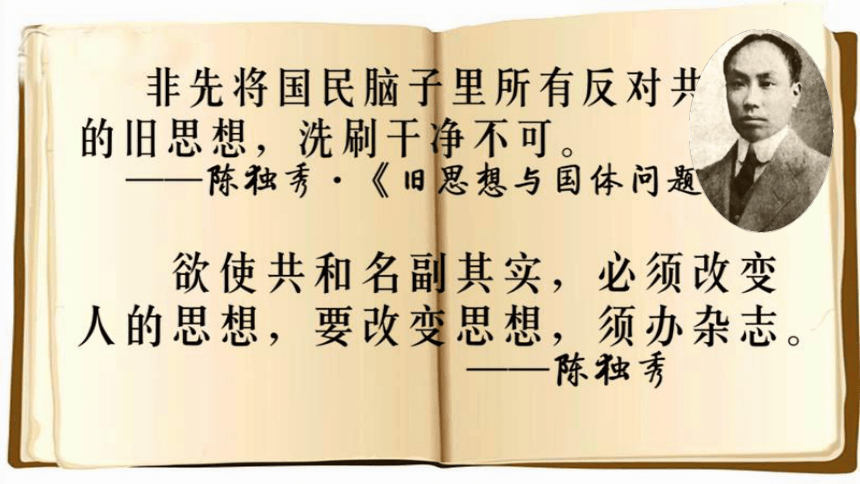 非先将国民脑子里所有反对共
的旧思想，洗刷干净不可。
——陈独秀·《旧思想与国体问题
欲使共和名副其实，必须改变
人的思想，要改变思想，须办杂志。
——陈独秀